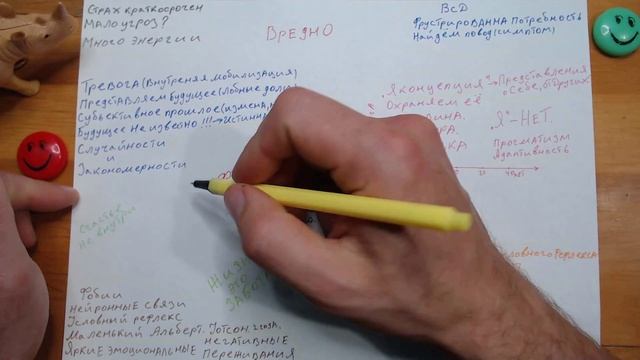 Страх краткосрочен
Мало угроз?
Много энергии
Вредно
ВСД
Фрустрированна потребность
Найдём повод (симптом)
Тревога (внутреняя мобилизация)
Представляем будущее (лобные доли)
Субъективное прошлое (измена,
Будущее неизвестно !!! →
Случайности
и
Закономерности
Я концепция → Представления
о себе, от других
Охраняем её
"Я" - НЕТ.
Прогматизм
Адаптивность
Счастье
не внутри
Жизнь
это
Фобии
Нейронные связи
Условный рефлекс
Маленький Альберт.
Яркие эмоциональные негативные
переживания